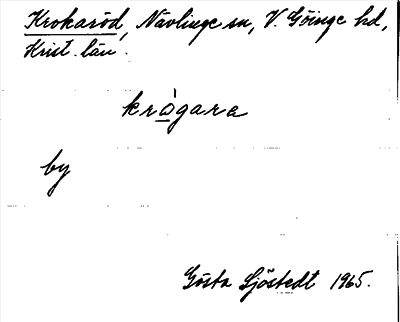 Krokaröd, Nävlinge sn, V. Göinge hd,
Krist. län.
krògara
by
Gösta Sjöstedt 1965.